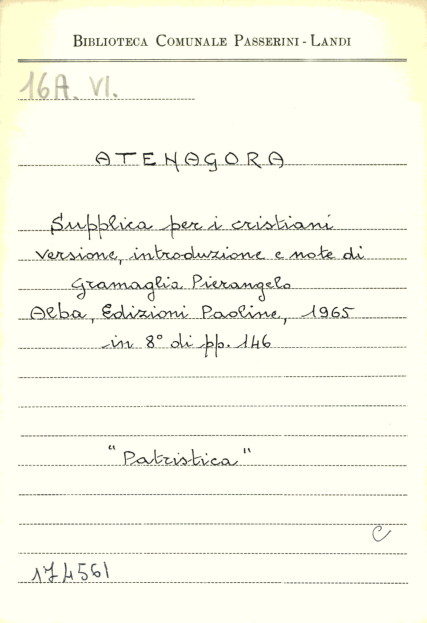 BIBLIOTECA COMUNALE PASSERINI - LANDI
16A. VI.
ATENAGORA
Supplica per i cristiani
versione, introduzione e note di
Gramaglia Pierangelo
Alba, Edizioni Paoline, 1965
in 8° di pp. 146
"Patristica"
C
174561